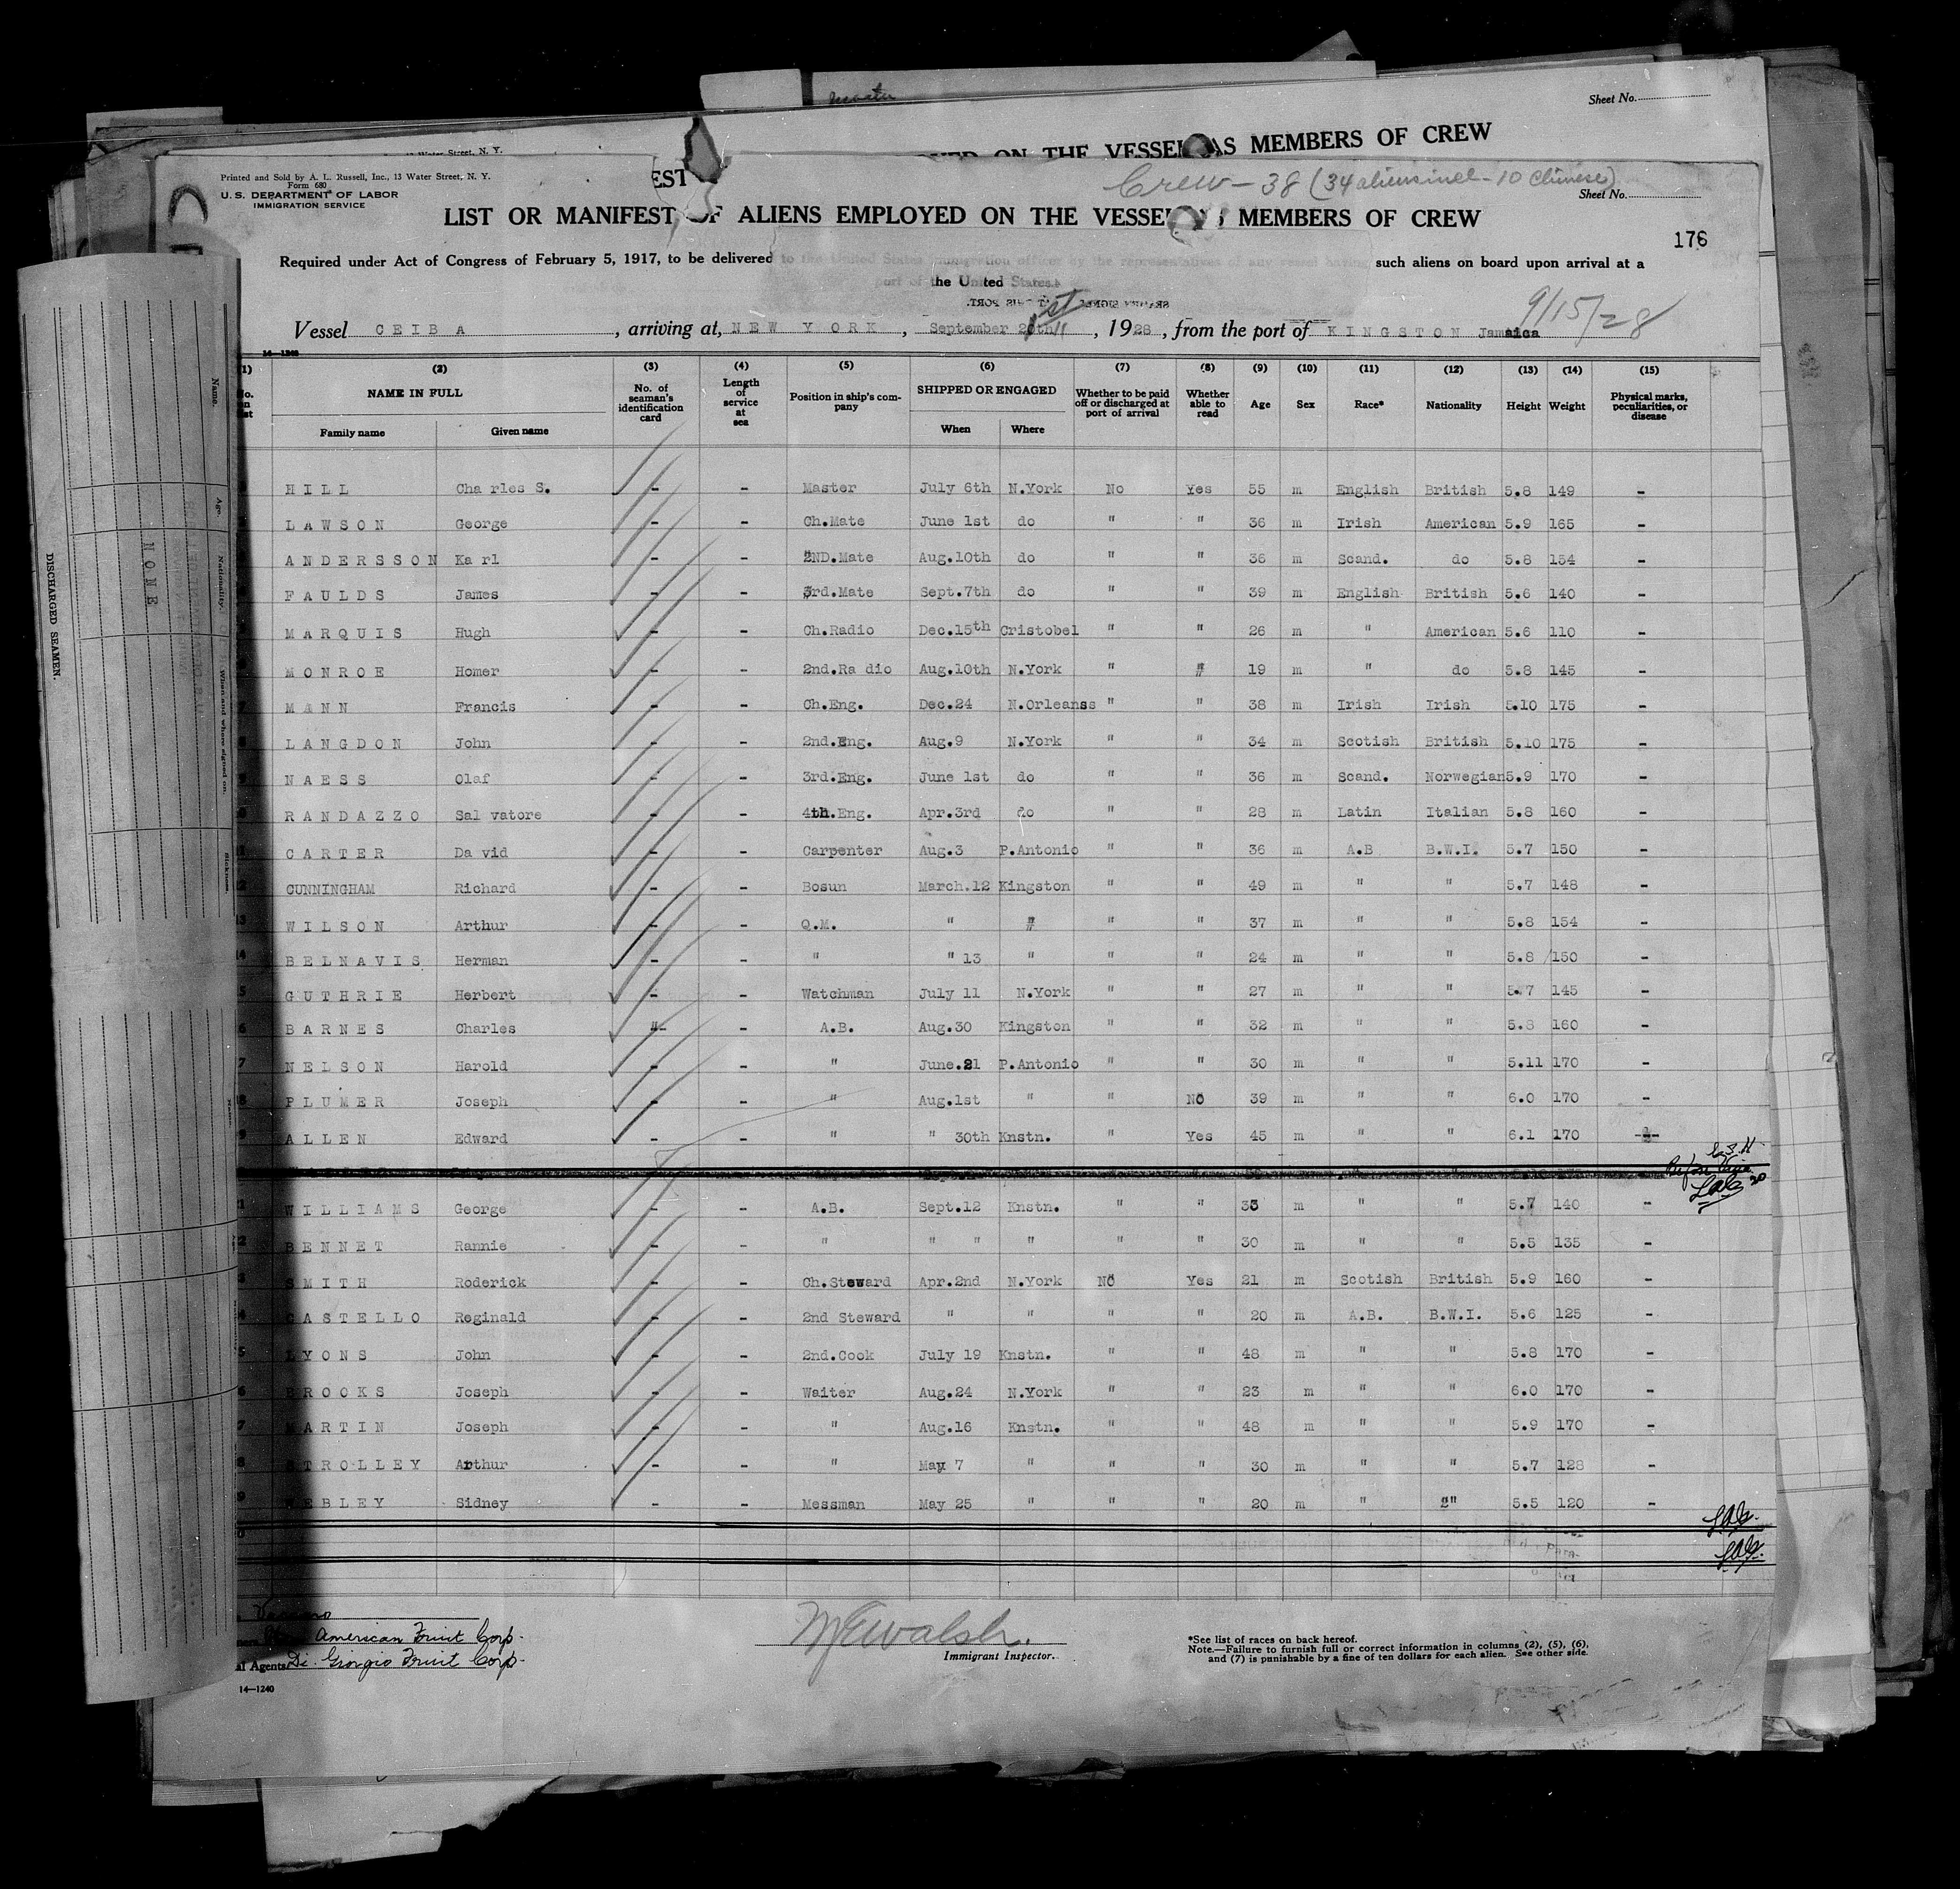 Sheet No.
MEMBERS OF CREW
Printed and Sold by A. L. Russell, Inc., 13 Water Street, N. Y.
Form 680
U. S. DEPARTMENT OF LABOR
IMMIGRATION SERVICE
Crew - 38 (34 aliens incl - 10 Chinese)
Sheet No.
LIST OR MANIFEST OF ALIENS EMPLOYED ON THE VESSEL MEMBERS OF CREW
176
Required under Act of Congress of February 5, 1917, to be delivered to the United States immigration officer by the representatives of any vessel having such aliens on board upon arrival at a
port of the United States.
9/15/28
Vessel CEIBA, arriving at, NEW YORK, September 20th, 1928, from the port of KINGSTON Jamaica
14—1240
(1) (2) (3) (4) (5) (6) (7) (8) (9) (10) (11) (12) (13) (14) (15)
NAME IN FULL No. of seaman's identification card Length of service at sea Position in ship's company SHIPPED OR ENGAGED Whether to be paid off or discharged at port of arrival Whether able to read Age Sex Race* Nationality Height Weight Physical marks, peculiarities, or disease
Family name Given name When Where
HILL Charles S. - - Master July 6th N.York No Yes 55 m English British 5.8 149 -
LAWSON George - - Ch.Mate June 1st do " " 36 m Irish American 5.9 165 -
ANDERSSON Karl - - 2ND.Mate Aug.10th do " " 36 m Scand. do 5.8 154 -
FAULDS James - - 3rd.Mate Sept.7th do " " 39 m English British 5.6 140 -
MARQUIS Hugh - - Ch.Radio Dec.15th Cristobel " " 26 m " American 5.6 110 -
MONROE Homer - - 2nd.Radio Aug.10th N.York " " 19 m " do 5.8 145 -
7 MANN Francis - - Ch.Eng. Dec.24 N.Orleanss " " 38 m Irish Irish 5.10 175 -
8 LANGDON John - - 2nd.Eng. Aug.9 N.York " " 34 m Scotish British 5.10 175 -
9 NAESS Olaf - - 3rd.Eng. June 1st do " " 36 m Scand. Norwegian 5.9 170 -
0 RANDAZZO Salvatore - - 4th.Eng. Apr.3rd do " " 28 m Latin Italian 5.8 160 -
1 CARTER David - - Carpenter Aug.3 P.Antonio " " 36 m A.B B.W.I. 5.7 150 -
2 CUNNINGHAM Richard - - Bosun March.12 Kingston " " 49 m " " 5.7 148 -
3 WILSON Arthur - - Q.M. " " " " 37 m " " 5.8 154 -
4 BELNAVIS Herman - - " " 13 " " " 24 m " " 5.8 150 -
5 GUTHRIE Herbert - - Watchman July 11 N.York " " 27 m " " 5.7 145 -
6 BARNES Charles - - A.B. Aug.30 Kingston " " 32 m " " 5.8 160 -
7 NELSON Harold - - " June.21 P.Antonio " " 30 m " " 5.11 170 -
8 PLUMER Joseph - - " Aug.1st " " No 39 m " " 6.0 170 -
9 ALLEN Edward - - " " 30th Knstn. " Yes 45 m " " 6.1 170 -
1 WILLIAMS George - - A.B. Sept.12 Knstn. " " 33 m " " 5.7 140 -
2 BENNET Rannie - - " " " " " " 30 m " " 5.5 135 -
3 SMITH Roderick - - Ch.Steward Apr.2nd N.York No Yes 21 m Scotish British 5.9 160 -
4 CASTELLO Reginald - - 2nd Steward " " " " 20 m A.B. B.W.I. 5.6 125 -
5 LYONS John - - 2nd.Cook July 19 Knstn. " " 48 m " " 5.8 170 -
6 BROOKS Joseph - - Waiter Aug.24 N.York " " 23 m " " 6.0 170 -
7 MARTIN Joseph - - " Aug.16 Knstn. " " 48 m " " 5.9 170 -
8 STROLLEY Arthur - - " May 7 " " " 30 m " " 5.7 128 -
9 WEBLEY Sidney - - Messman May 25 " " " 20 m " " 5.5 120 -
American Fruit Corp.
Agents Di Georgio Fruit Corp.
14—1240
Immigrant Inspector.
*See list of races on back hereof.
Note.—Failure to furnish full or correct information in columns (2), (5), (6),
and (7) is punishable by a fine of ten dollars for each alien. See other side.
DISCHARGED SEAMEN.
NONE
Name.
Age.
Nationality.
When and where signed on.